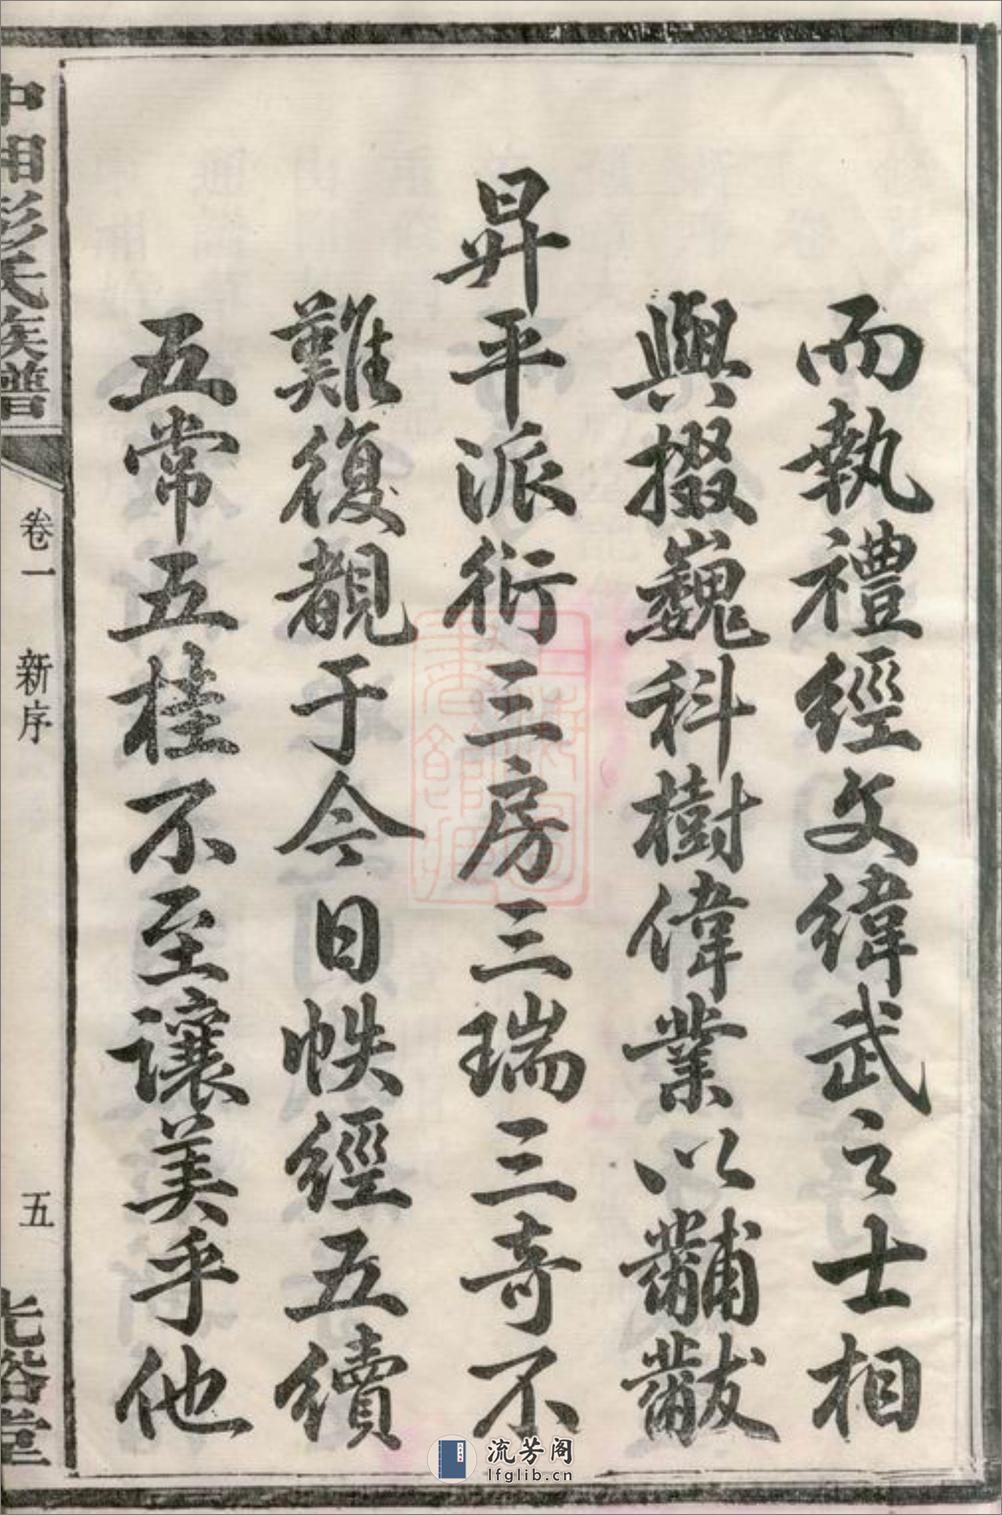 而執禮經文緯武之士相
與掇巍科樹偉業以黼黻
昇平派衍三房三瑞三奇不
難復覩于今日帙經五續
五常五桂不至讓美乎他
中湘彭氏族譜
卷一 新序
五
光裕堂
流芳阁
lfglib.cn